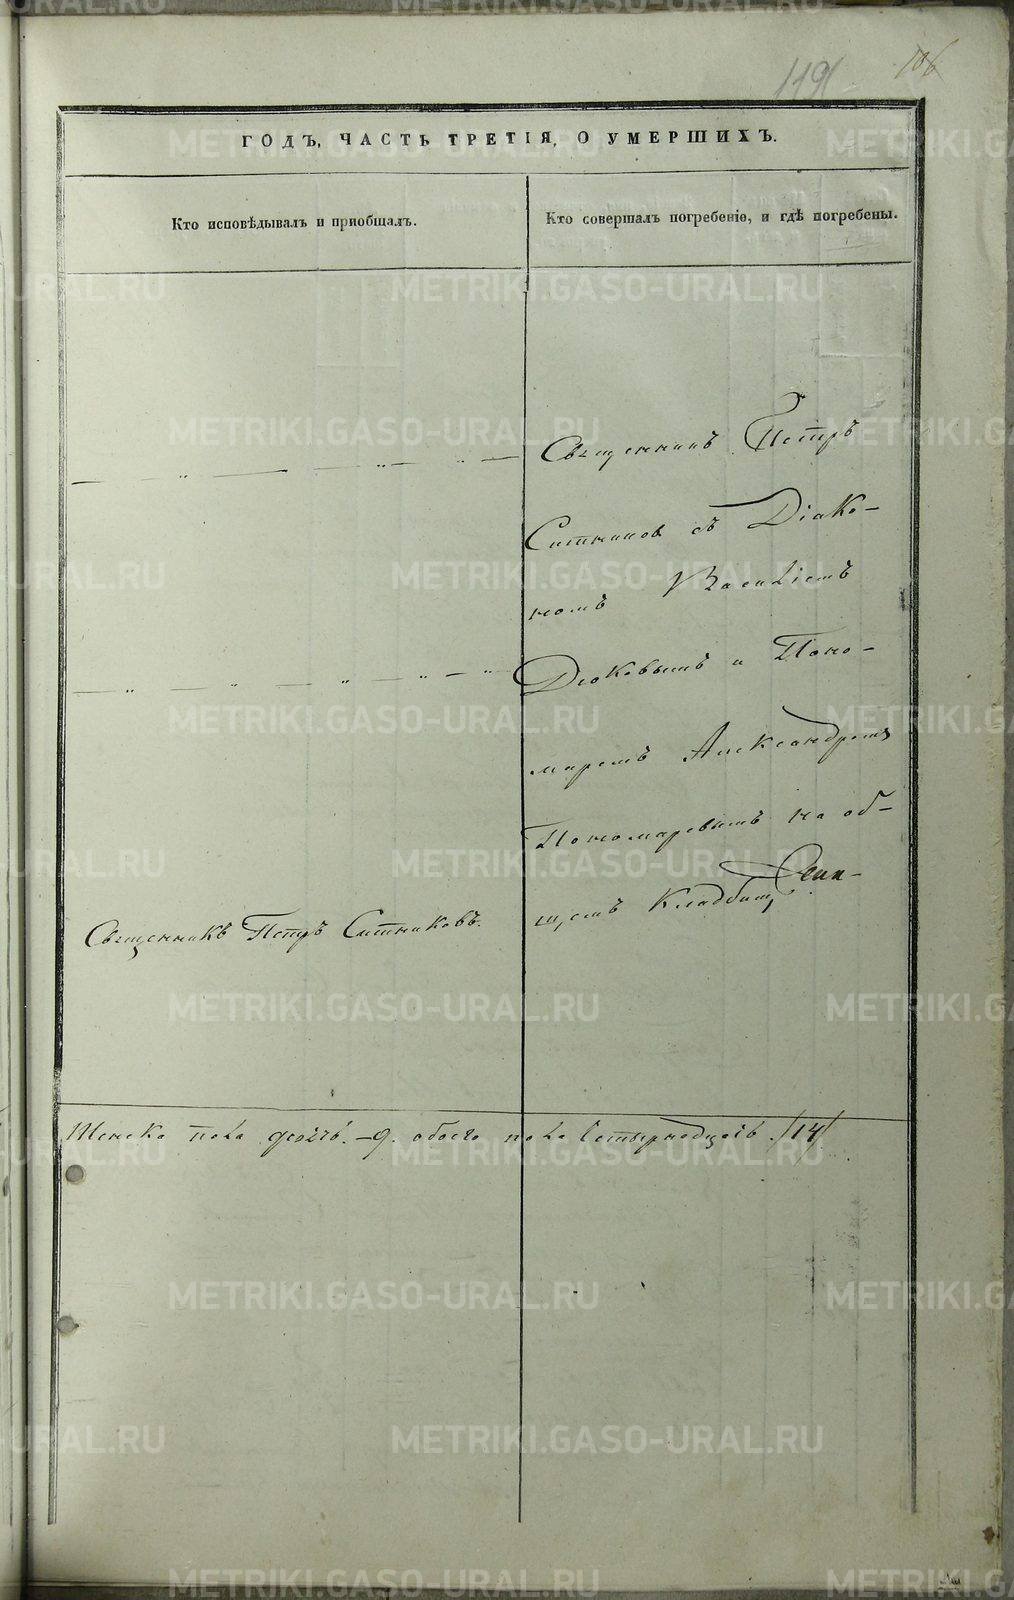 119
106
ГОДЪ, ЧАСТЬ ТРЕТІЯ, О УМЕРШИХЪ.
Кто исповѣдывалъ и приобщалъ.
Кто совершалъ погребеніе, и гдѣ погребены.
Священникъ Петръ
Ситниковъ съ Діако-
номъ Василіемъ
Дюковымъ и Поно-
маремъ Александромъ
Пономаревымъ на об-
щемъ Кладбищѣ
Священникъ Петръ Ситниковъ.
Женска пола девять. – 9. обоего пола Четырнадцать /14/
METRIKI.GASO-URAL.RU